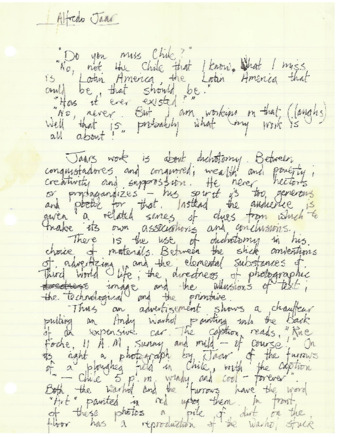 Alfredo Jaar
"Do you miss Chile?"
"No, not the Chile that I know. What I miss
is Latin America, the Latin America that
could be, that should be."
"Has it ever existed?"
"No, never. But I am working on that, (laughs)
Well that is probably what my work is
all about."
Jaar's work is about dichotomy. Between
conquistadores and conquered, wealth and poverty,
creativity and suppression. He never hectors
or propagandizes – his spirit is too generous
and poetic for that. Instead the audience is
given a related series of clues from which to
make its own associations and conclusions.
There is the use of dichotomy in his
choice of materials. Between the slick conventions
of advertising and the elemental substances of
Third World life, the directness of photographic
image and the allusions of text,
the technological and the primitive.
Thus an advertisement shows a chauffeur
putting an Andy Warhol painting into the back
of an expensive car. The caption reads, "Rue
Foche, 11 A.M. sunny and mild – of course." On
its right a photograph by Jaar of the furrows
of a ploughed field in Chile, with the caption
– Chile 5 p.m. windy and cool – forever."
Both the Warhol and the furrows have the word
"Art" painted in red upon them. In front
of these photos a pile of dirt on the
floor has a reproduction of the Warhol, stuck